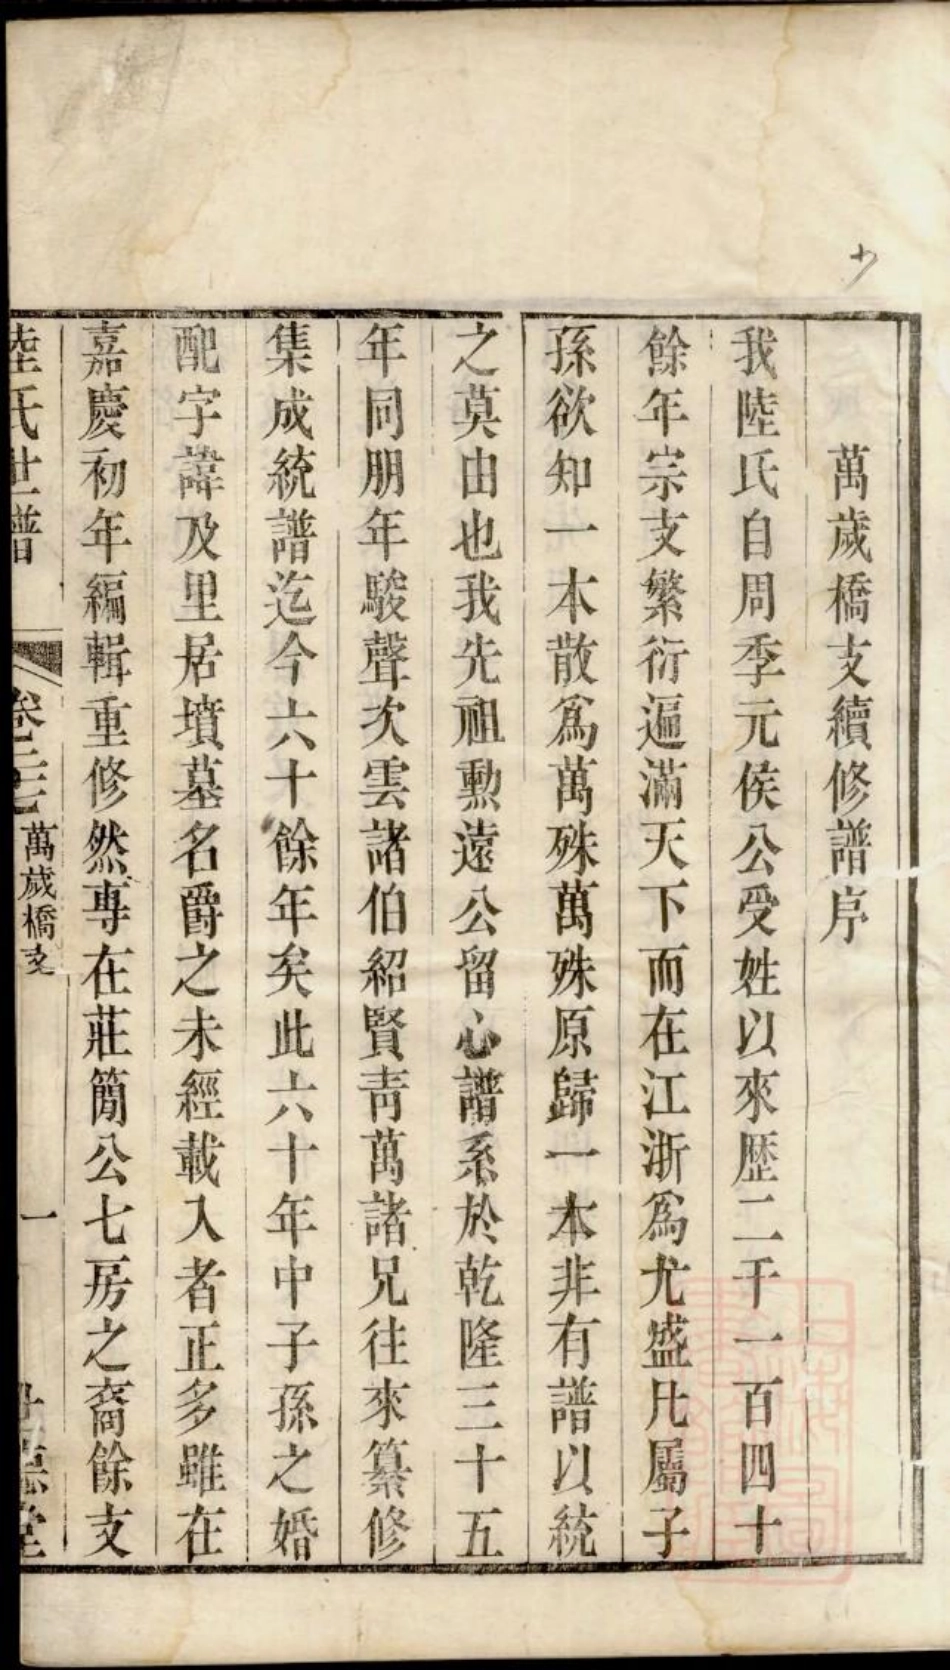 萬歲橋支續修譜序
我陸氏自周季元侯公受姓以來歷二千一百四十
餘年宗支繁衍遍滿天下而在江浙爲尤盛凡屬子
孫欲知一本散爲萬殊萬殊原歸一本非有譜以統
之莫由也我先祖勲遠公留心譜系於乾隆三十五
年同朋年駿聲次雲諸伯紹賢靑萬諸兄往來纂修
集成統譜迄今六十餘年矣此六十年中子孫之婚
配字諱及里居墳墓名爵之未經載入者正多雖在
嘉慶初年編輯重修然專在莊簡公七房之裔餘支
陸氏世譜
萬歲橋支
一